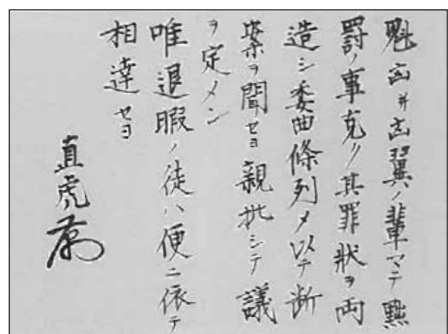 魁凶并凶翼ノ輩マテ黜
罰ノ事克ク其罪状ヲ両
造シ委曲條列メ以テ断
案ヲ聞セヨ親批シテ議
ヲ定メン
唯退暇ノ徒ハ便ニ依テ
相達セヨ
直虎